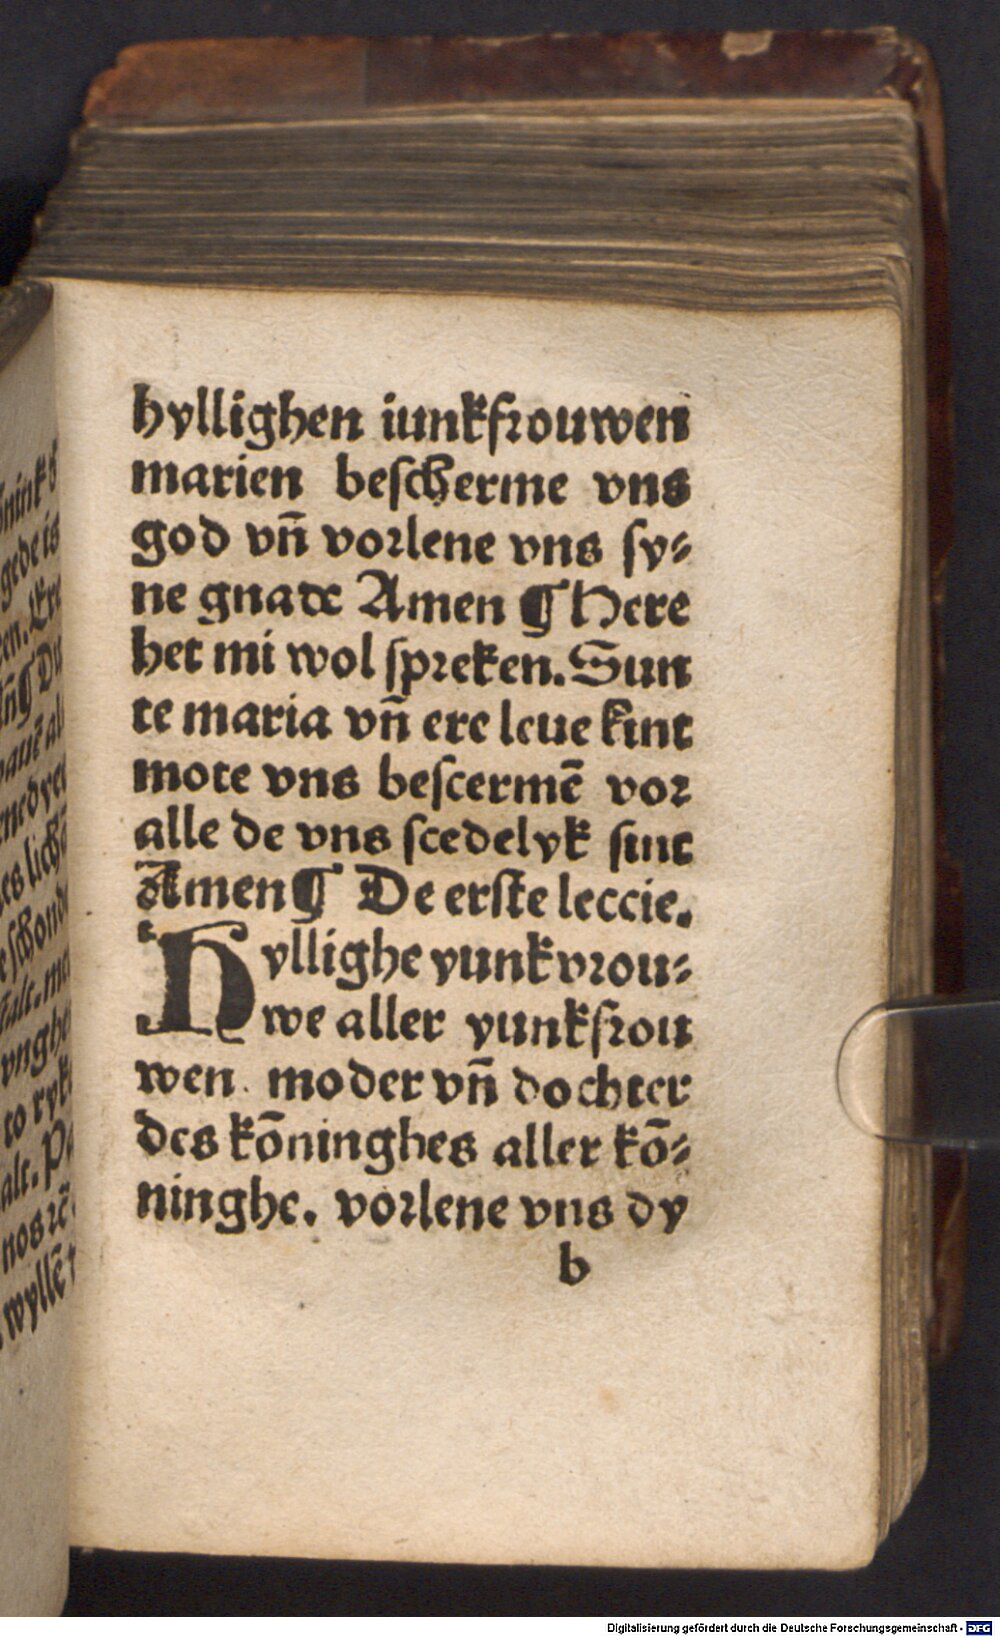 hyllighen iunkfrouwen
marien bescherme vns
god vn̄ vorlene vns sy⸗
ne gnade Amen ¶ Here
het mi wol spreken. Sun
te maria vn̄ ere leue kint
mote vns bescermē vor
alle de vns scedelyk sint
Amen ¶ De erste leccie.
Hyllighe yunkvrou⸗
we aller yunkfrou
wen. moder vn̄ dochter
des kōninghes aller kō⸗
ninghe. vorlene vns dy
b
Digitalisierung gefördert durch die Deutsche Forschungsgemeinschaft - DFG